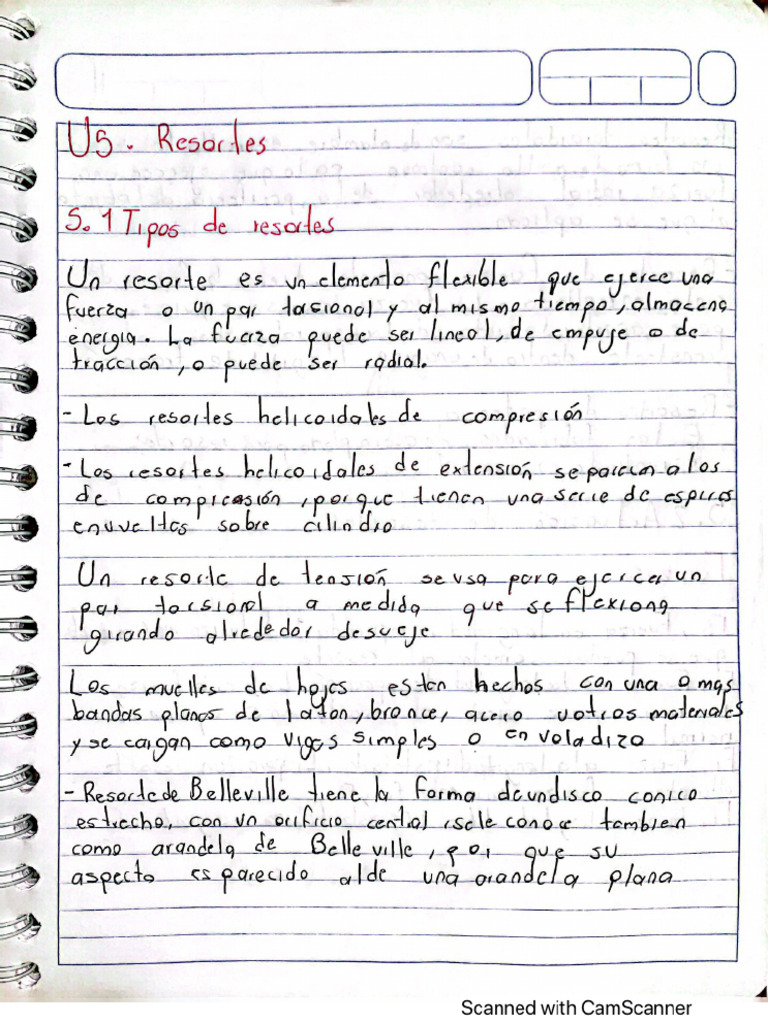 U5. Resortes
5.1 Tipos de resortes
Un resorte es un elemento flexible que ejerce una
fuerza o un par torsional y al mismo tiempo, almacena
energia. La fuerza puede ser lineal, de empuje o de
tracción, o puede ser radial.
- Los resortes helicoidales de compresión
- Los resortes helicoidales de extensión se parecen a los
de compresión, porque tienen una serie de espiras
envueltas sobre cilindro
Un resorte de tensión se usa para ejercer un
par torsional a medida que se flexiona
girando alrededor de su eje
Los muelles de hojas estan hechos con una o mas
bandas planas de laton, bronce, acero u otros materiales
y se cargan como vigas simples o en voladizo
- Resorte de Belleville tiene la forma de un disco conico
estrecho, con un orificio central, se le conoce tambien
como arandela de Belleville, por que su
aspecto es parecido al de una arandela plana
Scanned with CamScanner